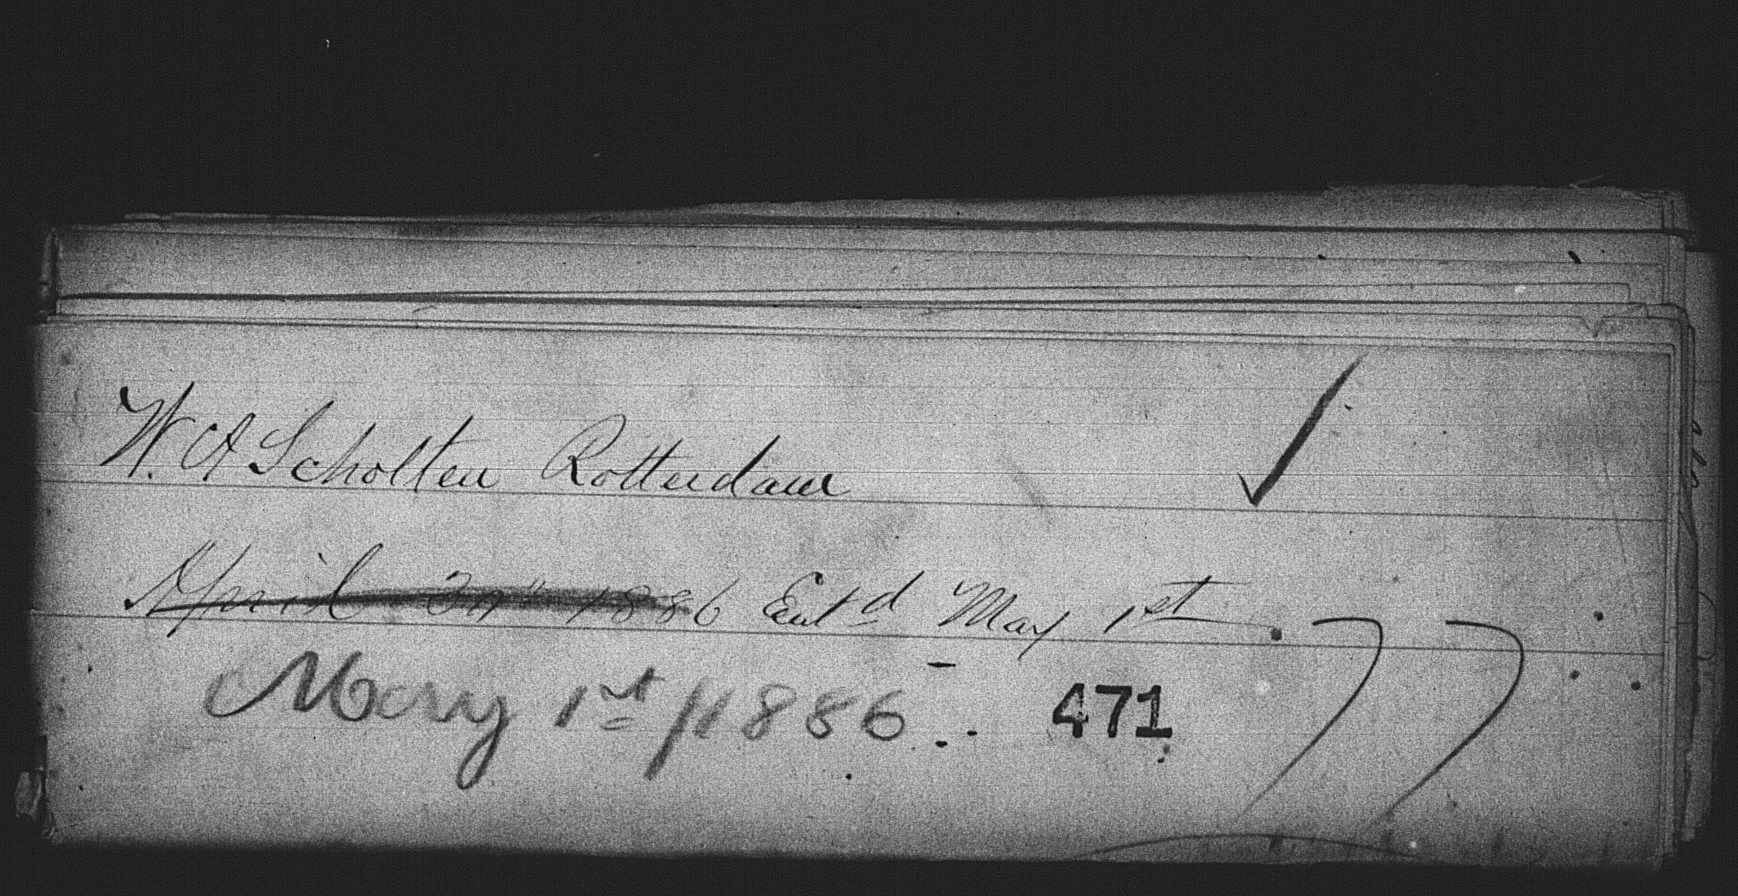 W. A Scholten Rotterdam
April 30th 1886 Ent'd May 1st
May 1st / 1886 471 77